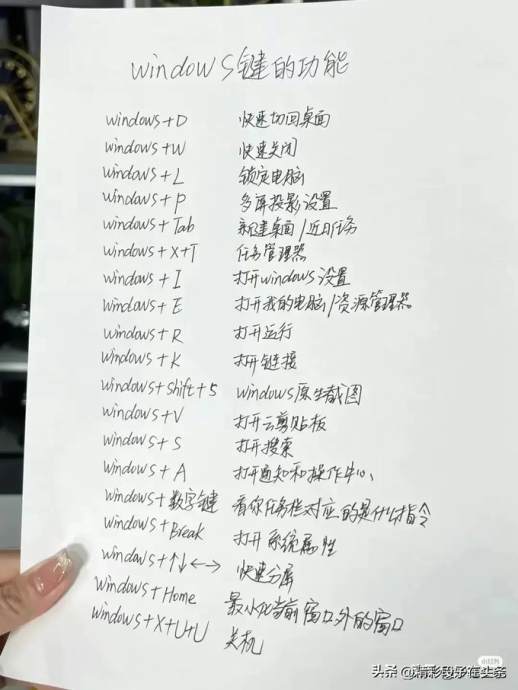 windows键的功能
windows+D 快速切回桌面
windows+W 快速关闭
windows+L 锁定电脑
windows+P 多屏投影设置
windows+Tab 新建桌面/近日任务
windows+X+T 任务管理器
windows+I 打开windows设置
windows+E 打开我的电脑/资源管理器
windows+R 打开运行
windows+K 打开链接
windows+shift+S windows原生截图
windows+V 打开云剪贴板
windows+S 打开搜索
windows+A 打开通知和操作中心
windows+数字键 看你任务栏对应的是什么指令
windows+Break 打开系统属性
windows+↑↓←→ 快速分屏
windows+Home 最小化当前窗口外的窗口
windows+X+U+U 关机
小红书
头条@精彩段子在头条